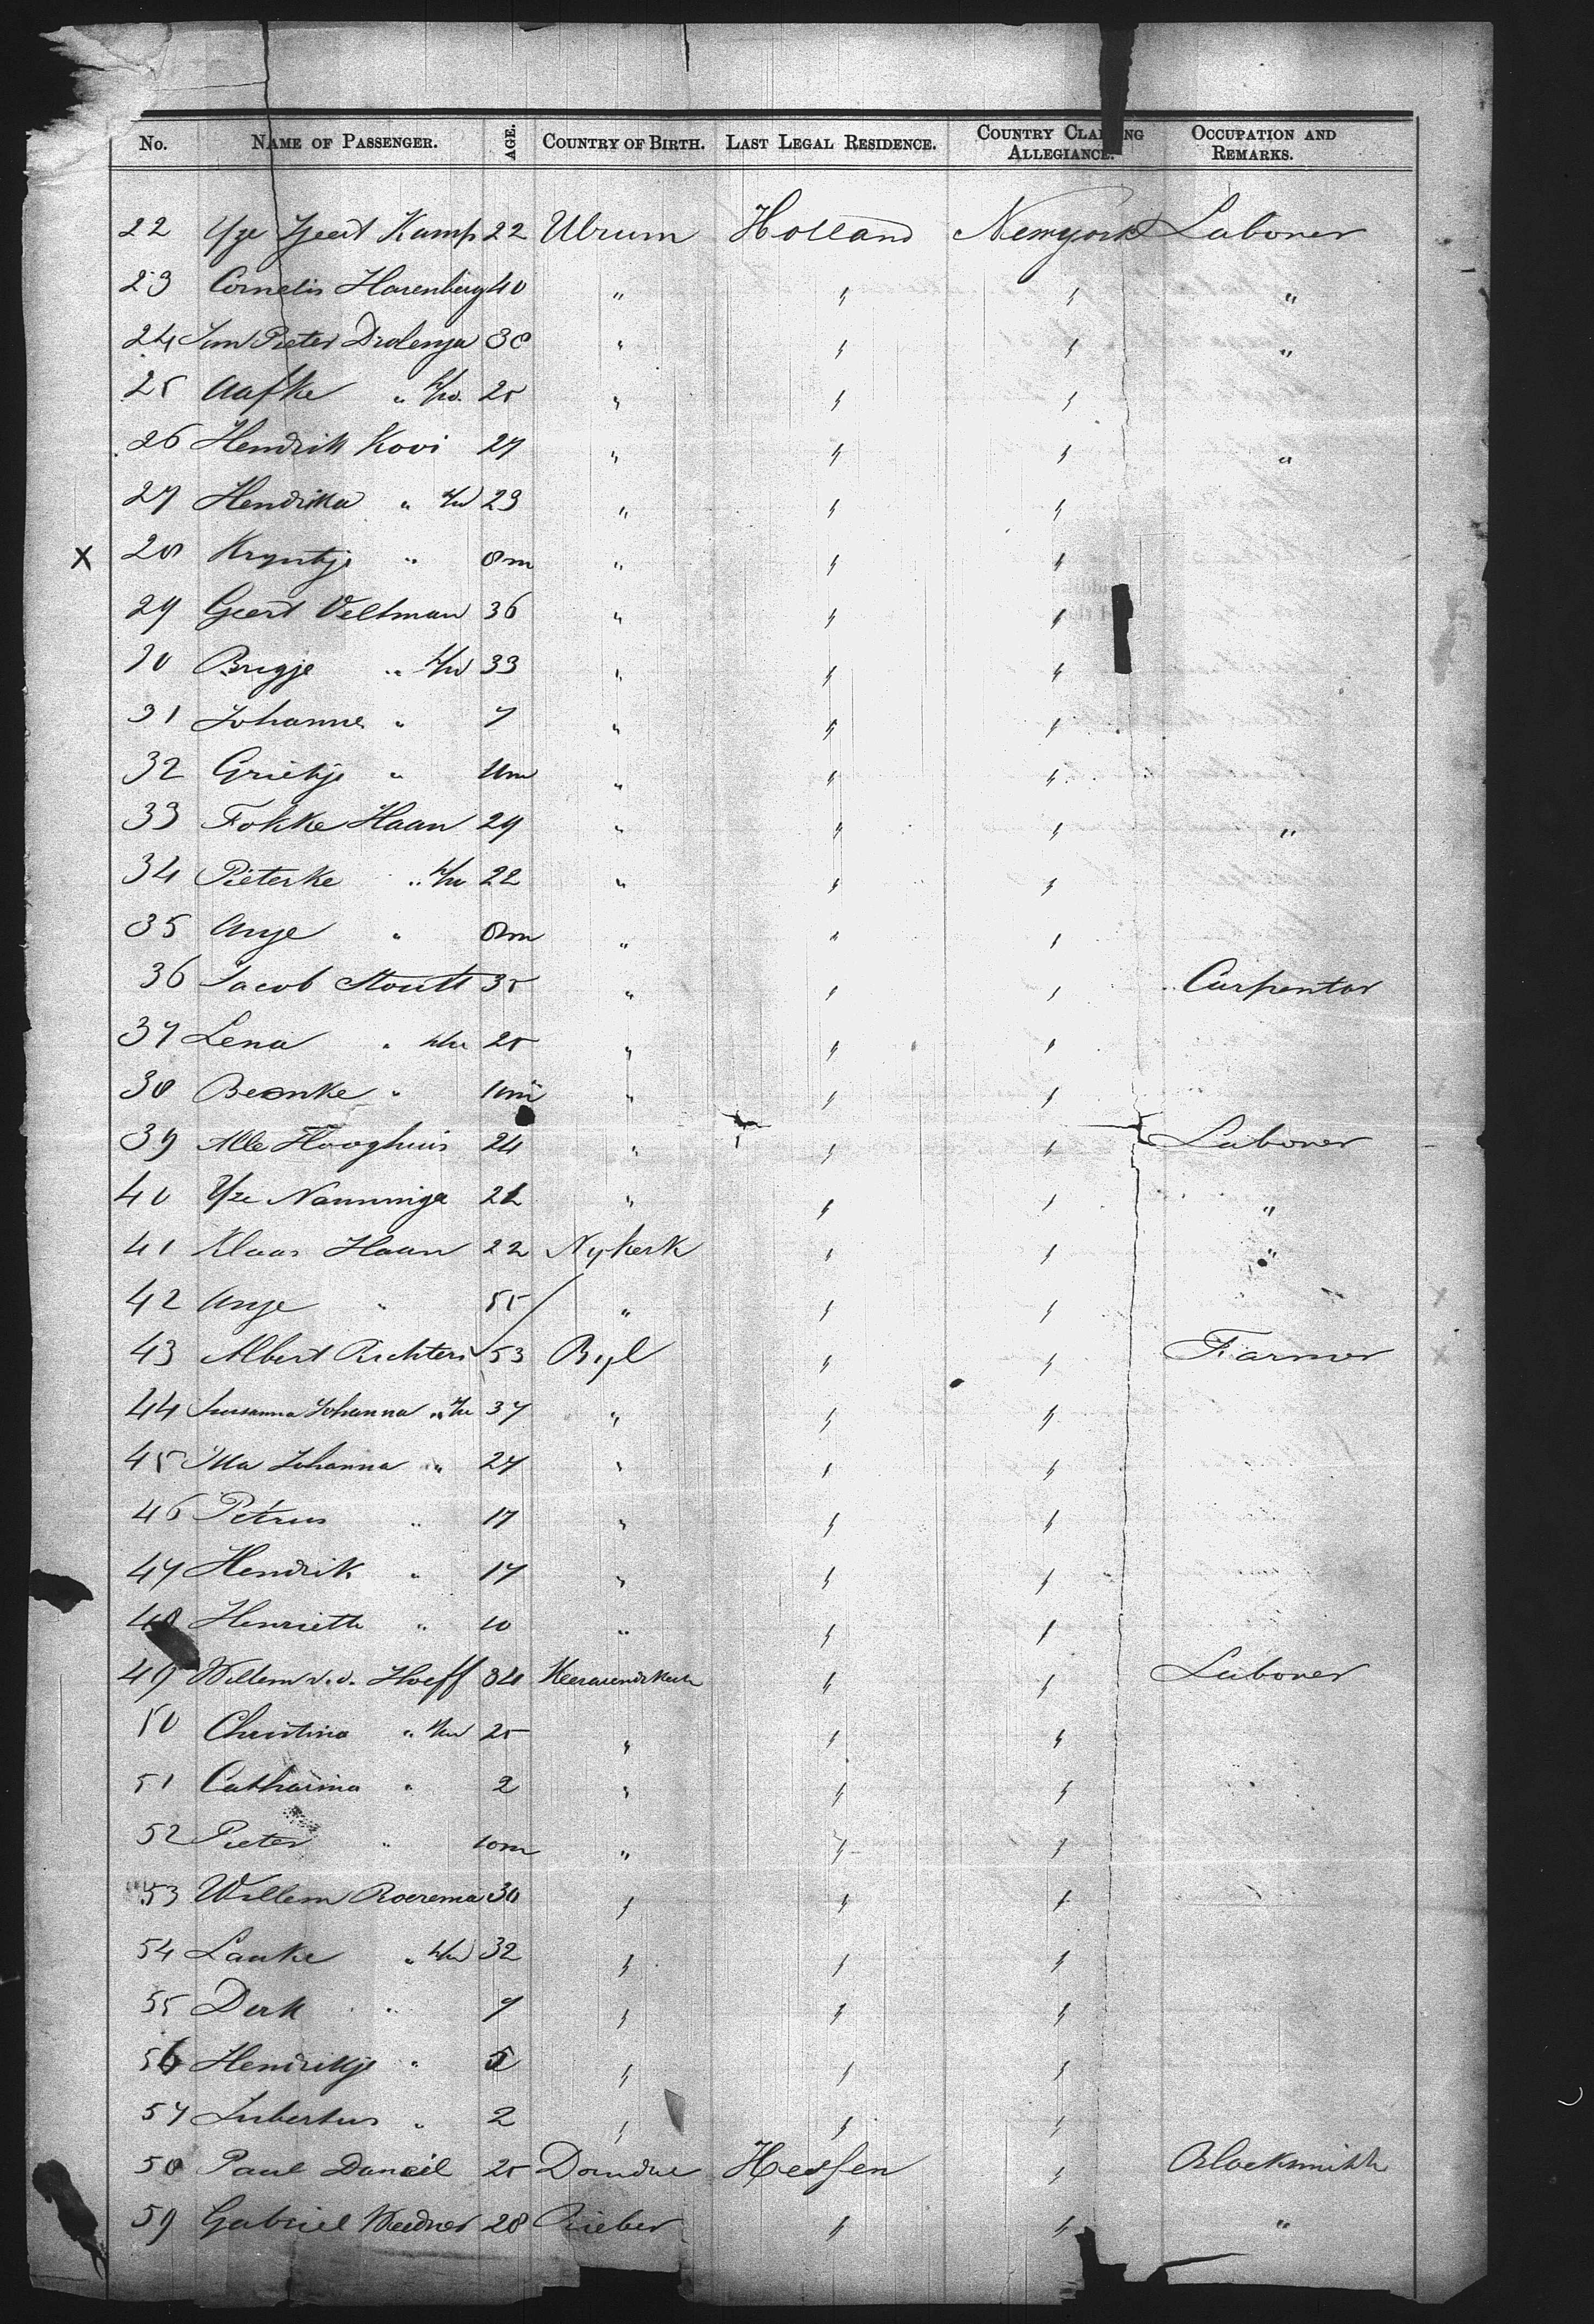 No. NAME OF PASSENGER. AGE. COUNTRY OF BIRTH. LAST LEGAL RESIDENCE. COUNTRY CLAI NG ALLEGIANCE. OCCUPATION AND REMARKS.
22 Geert Kamp 22 Ulrum Holland Newyork Laborer
23 Cornelis Harenberg 40 " " " "
24 Jan Pieter Drolenga 30 " " " "
25 Aafke " h/w. 25 " " "
26 Hendrik Kooi 27 " " " "
27 Hendrika " h/w 23 " " "
X 28 Kryntje " 8m " " "
29 Geert Veltman 36 " " "
30 Brugje " h/w 33 " " "
31 Johanne " 7 " " "
32 Grietje " 11m " " "
33 Fokke Haan 29 " " " "
34 Pieterke " h/w 22 " " "
35 Anje " 8m " " "
36 Jacob Stoutt 35 " " " Carpentor
37 Lena " h/w 25 " " "
38 " " " "
39 Alle Hooghuis 24 " " " Laborer
40 Yze Nanninga 22 " " " "
41 Klaas Haan 22 Nykerk " " "
42 Anje " 55 " " "
43 Albert Richters 53 Byl " " Farmer
44 Susanna Johanna " h/w 37 " " "
45 Johanna " 27 " " "
46 Petrus " 17 " " "
47 Hendrik " 17 " " "
48 Henriette " 10 " " "
49 Willem v. d. Hoeff 34 " " Laborer
50 Christina " h/w 25 " " "
51 Catharina " 2 " " "
52 Pieter " 10m " " "
53 Willem Roerema 30 " " "
54 Lauke " h/w 32 " " "
55 Derk " 7 " " "
56 Hendrikje " 5 " " "
57 Lubertus " 2 " " "
58 Paul Daneil 25 Hessen " Blacksmith
59 Gabriel Weidner 28 Rieber " " "